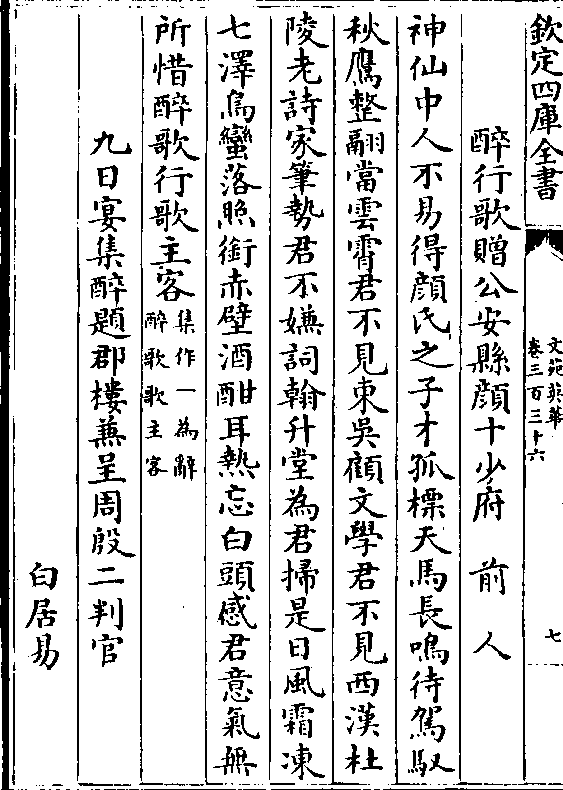 欽定四庫全書
文苑英華
卷三百三十六
七
醉行歌贈公安縣顔十少府 前人
神仙中人不易得顔氏之子才孤標天馬長鳴待駕馭
秋鷹整翮當雲霄君不見東吳顧文學君不見西漢杜
陵老詩家筆勢君不嫌詞翰升堂為君掃是日風霜凍
七澤烏蠻落照銜赤壁酒酣耳熱忘白頭感君意氣無
所惜醉歌行歌主客集作一為辭醉歌歌主客
九日宴集醉題郡樓蕪呈周殷二判官
白居易